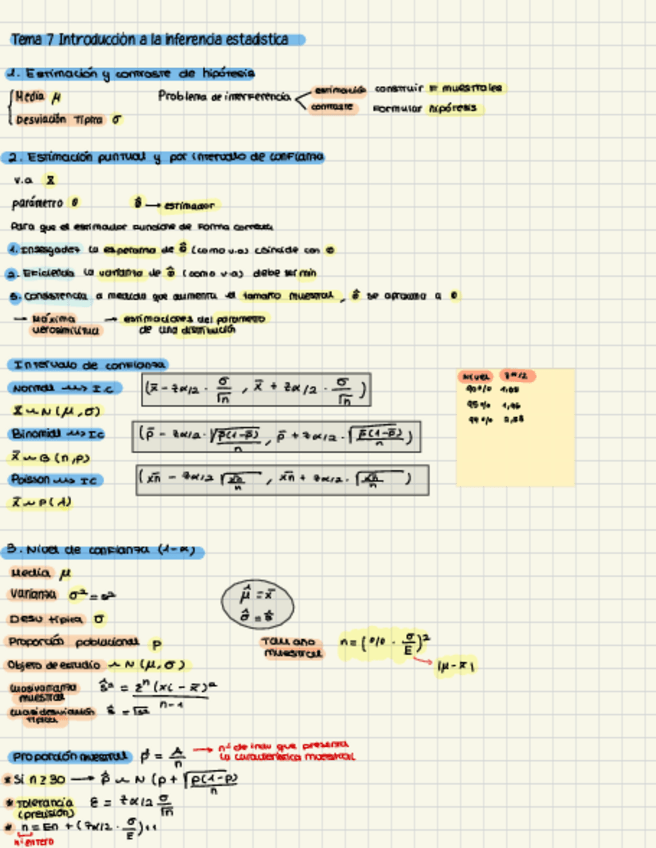 Tema 7 Introducción a la inferencia estadística
1. Estimación y contraste de hipótesis
Media μ
Desviación Típica σ
Problema de interferencia
estimación construir F muestrales
contraste Formular hipótesis
2. Estimación puntual y por intervalo de confianza
v.a X
parámetro θ θ̂ → estimador
Para que el estimador funcione de forma correcta
1. Insesgadez la esperanza de θ̂ (como v.a) coincide con θ
2. Eficiencia la varianza de θ̂ (como v.a) debe ser min
3. Consistencia a medida que aumenta el tamaño muestral, θ̂ se aproxima a θ
→ Máxima verosimilitud → estimaciones del parámetro
de una distribución
Intervalo de confianza
Normal → I.C (x̄ - zα/2 · σ/√n , x̄ + zα/2 · σ/√n)
X ~ N(μ, σ)
Binomial → IC (p̄ - zα/2 · √p̄(1-p̄)/n , p̄ + zα/2 · √p̄(1-p̄)/n)
X ~ B(n,p)
Poisson → IC (x̄n - zα/2 √x̄n/n , x̄n + zα/2 · √x̄n/n)
X ~ P(λ)
Nivel zα/2
95% 1,96
3. Nivel de confianza (1-α)
Media μ
Varianza σ² = s²
Desv típica σ
Proporción poblacional p
Objeto de estudio ~ N(μ, σ)
μ̂ = x̄
σ̂ = ŝ
Tamaño muestral n = (% · σ/E)²
|μ - x̄|
cuasivarianza muestral ŝ² = Σⁿ(xi - x̄)²/n-1
cuasidesviación típica ŝ = √ŝ²
Proporción muestral p̂ = A/n → nº de indv que presenta
la característica muestral
* Si n ≥ 30 → p̂ ~ N(p + √p(1-p)/n
* Tolerancia (precisión) ε = zα/2 σ/√n
* n = En + (zα/2 · σ/E)
nº entero